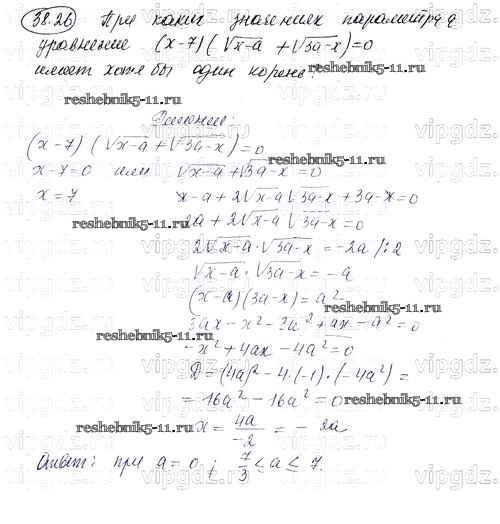 38.26 При каких значениях параметра a
уравнение (x-7)(√x-a + √3a-x)=0
имеет хотя бы один корень?
reshebnik5-11.ru
Решение:
(x-7)(√x-a + √3a-x)=0
x-7=0 или √x-a + √3a-x = 0
x=7 x-a+2√x-a √3a-x + 3a-x=0
reshebnik5-11.ru
2a+2√x-a √3a-x =0
2√x-a · √3a-x = -2a /:2
√x-a · √3a-x = -a
(x-a)(3a-x)=a²
3ax-x²-3a²+ax-a²=0
reshebnik5-11.ru
-x²+4ax-4a²=0
D=(4a)²-4·(-1)·(-4a²)=
=16a²-16a²=0
reshebnik5-11.ru
x = 4a/-2 = -2a
Ответ: при a=0 ; 7/3 ≤ a ≤ 7.
reshebnik5-11.ru